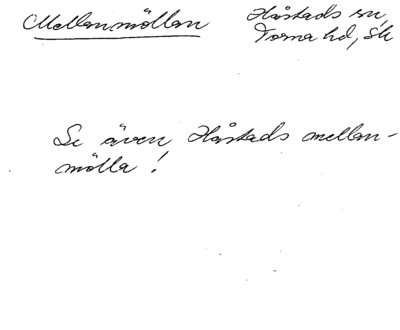 Mellanmöllan
Håstads sn,
Torna hd, Sk
Se även Håstads mellan-
mölla!